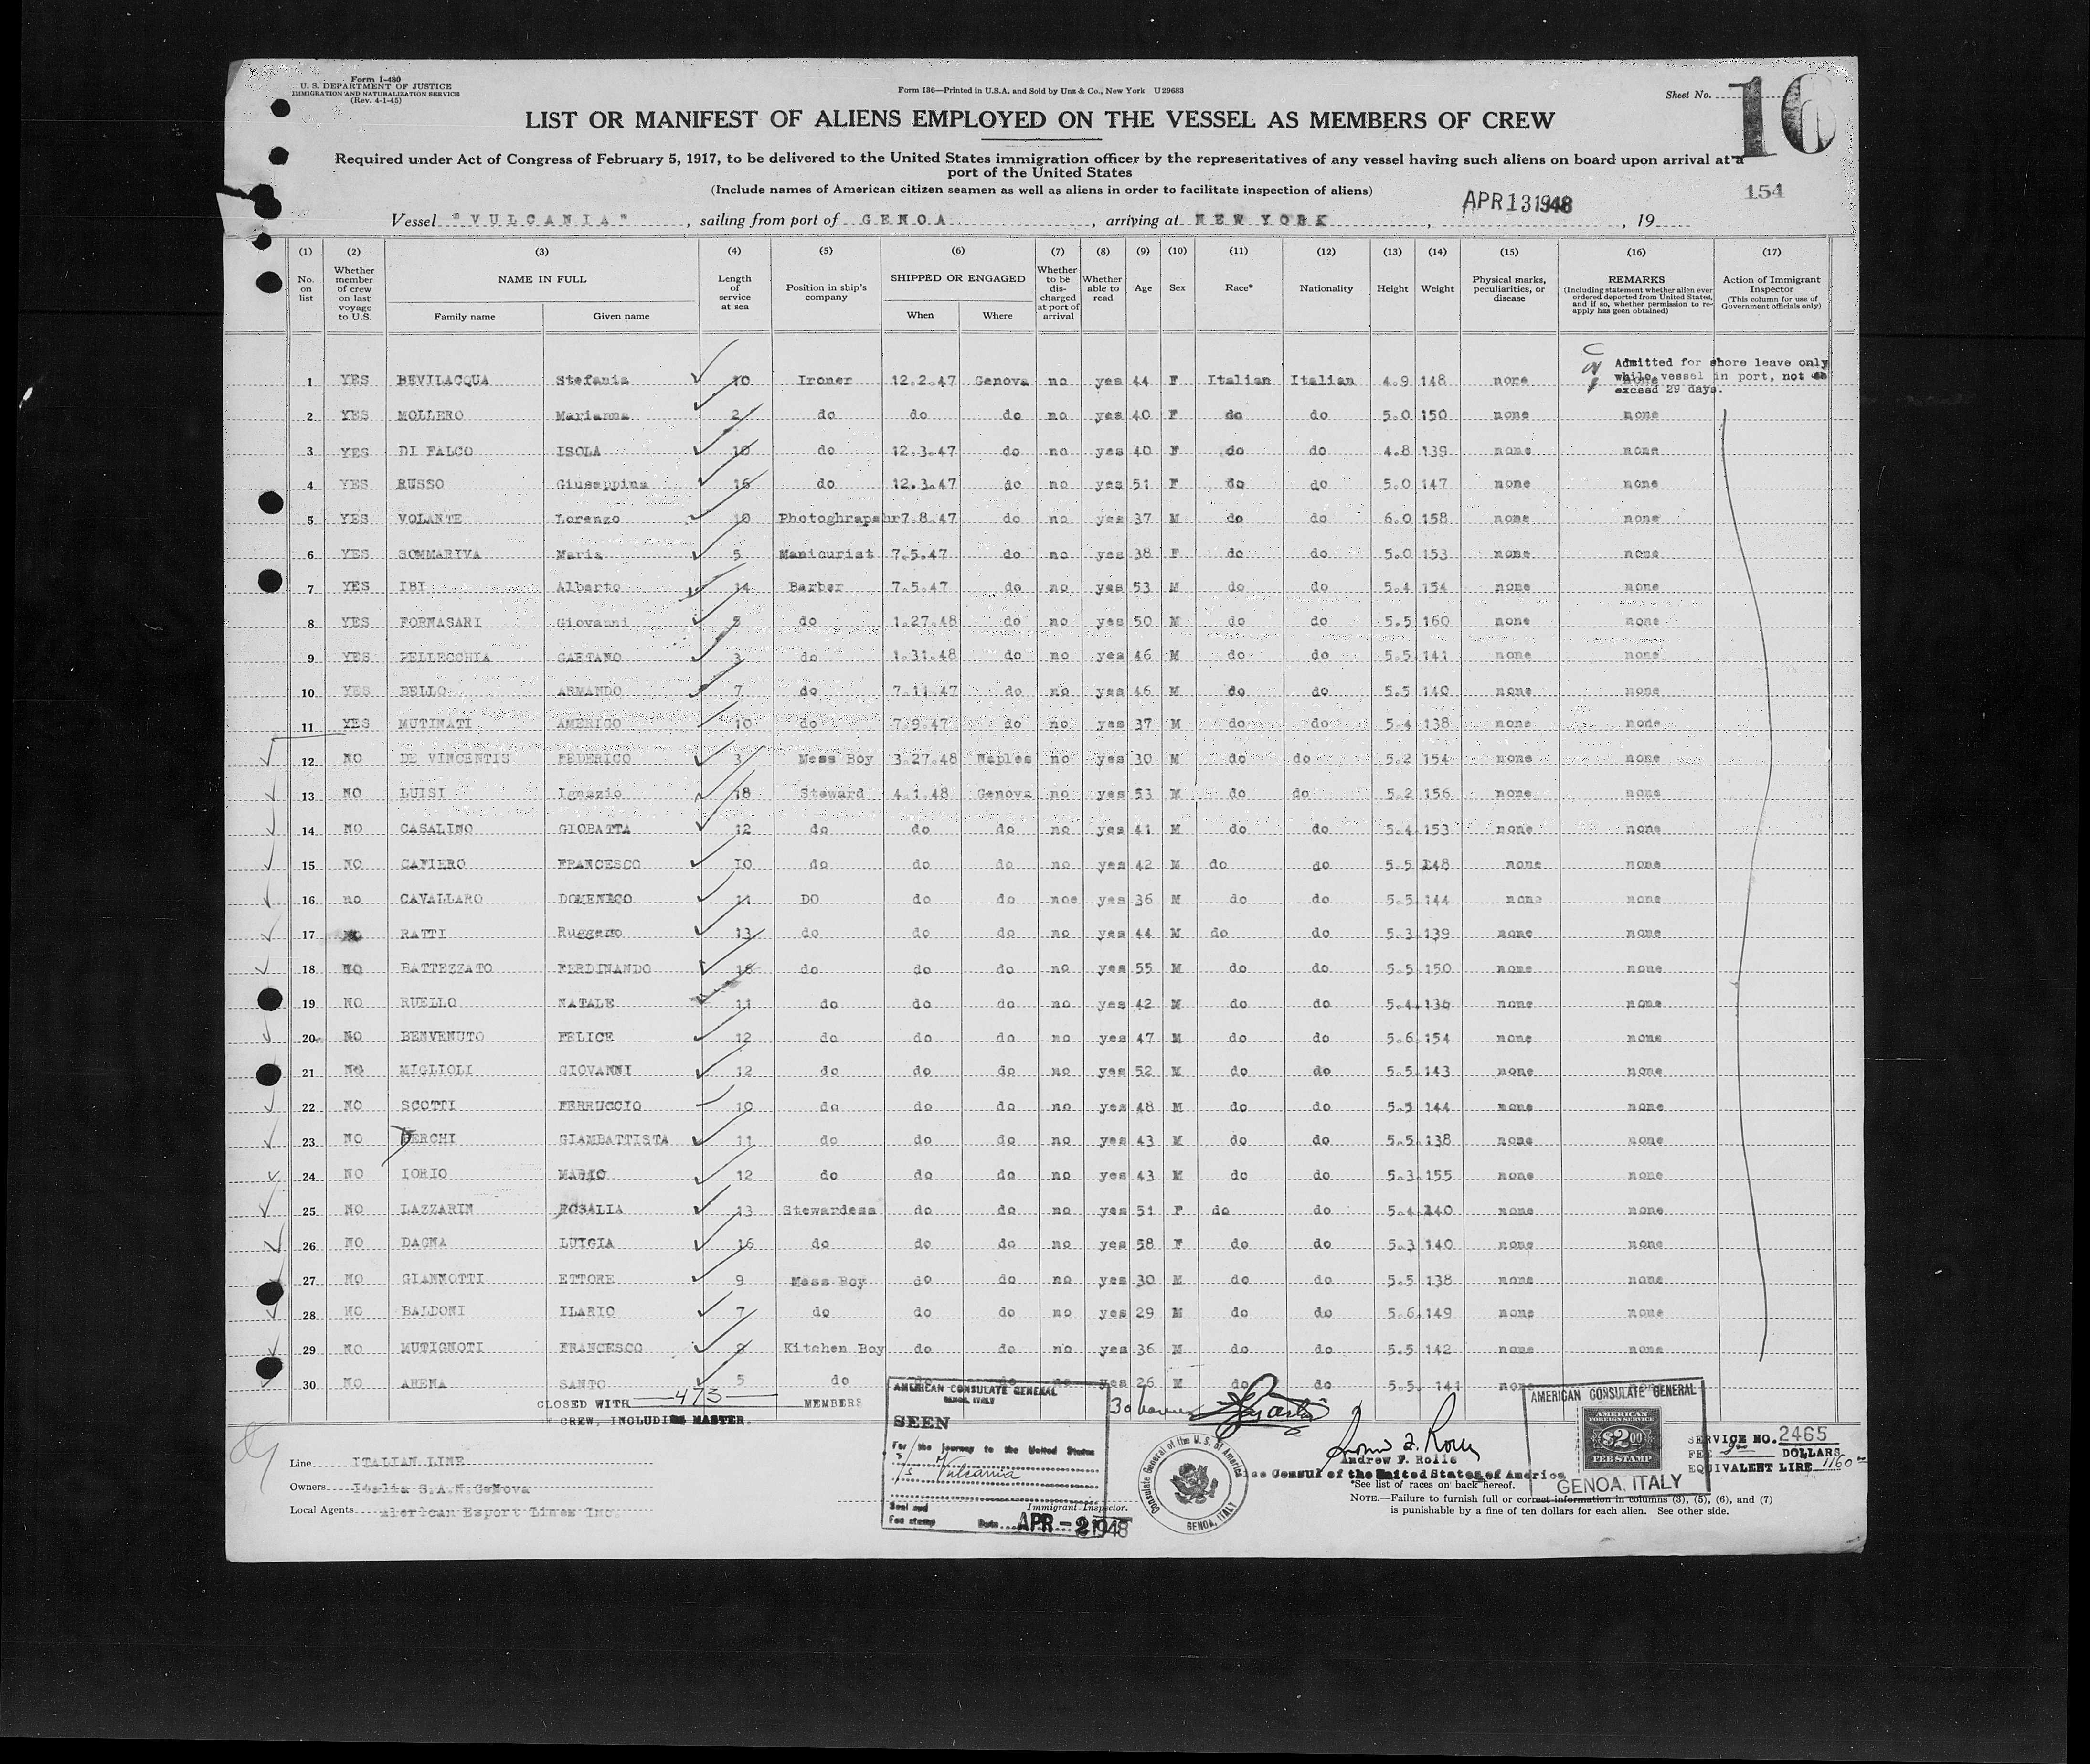 Form I-480
U. S. DEPARTMENT OF JUSTICE
IMMIGRATION AND NATURALIZATION SERVICE
(Rev. 4-1-45)
Form 136—Printed in U.S.A. and Sold by Unz & Co., New York U29683
Sheet No. 16
LIST OR MANIFEST OF ALIENS EMPLOYED ON THE VESSEL AS MEMBERS OF CREW
Required under Act of Congress of February 5, 1917, to be delivered to the United States immigration officer by the representatives of any vessel having such aliens on board upon arrival at a
port of the United States
(Include names of American citizen seamen as well as aliens in order to facilitate inspection of aliens)
154
APR 13 1948
Vessel "VULCANIA", sailing from port of GENOA, arriving at NEW YORK, 19
(1) (2) (3) (4) (5) (6) (7) (8) (9) (10) (11) (12) (13) (14) (15) (16) (17)
No. on list
Whether member of crew on last voyage to U.S.
NAME IN FULL
Family name
Given name
Length of service at sea
Position in ship's company
SHIPPED OR ENGAGED
When
Where
Whether to be discharged at port of arrival
Whether able to read
Age
Sex
Race*
Nationality
Height
Weight
Physical marks, peculiarities, or disease
REMARKS
(Including statement whether alien ever ordered deported from United States, and if so, whether permission to reapply has geen obtained)
Action of Immigrant Inspector
(This column for use of Government officials only)
Admitted for shore leave only
while vessel in port, not to
exceed 29 days.
1 YES BEVILACQUA Stefania 10 Ironer 12.2.47 Genova no yes 44 F Italian Italian 4.9 148 none none
2 YES MOLLERO Marianna 2 do do do no yes 40 F do do 5.0 150 none none
3 YES DI FALCO ISOLA 10 do 12.3.47 do no yes 40 F do do 4.8 139 none none
4 YES RUSSO Giuseppina 16 do 12.3.47 do no yes 51 F do do 5.0 147 none none
5 YES VOLANTE Lorenzo 10 Photoghrapehr 7.8.47 do no yes 37 M do do 6.0 158 none none
6 YES SOMMARIVA Maria 5 Manicurist 7.5.47 do no yes 38 F do do 5.0 153 none none
7 YES IBI Alberto 14 Barber 7.5.47 do no yes 53 M do do 5.4 154 none none
8 YES FORNASARI Giovanni do 1.27.48 do no yes 50 M do do 5.5 160 none none
9 YES PELLECCHIA GAETANO 3 do 1.31.48 do no yes 46 M do do 5.5 141 none none
10 YES BELLO ARMANDO 7 do 7.11.47 do no yes 46 M do do 5.5 140 none none
11 YES MUTINATI AMERIGO 10 do 7.9.47 do no yes 37 M do do 5.4 138 none none
12 NO DE VINCENTIS FEDERICO 3 Mess Boy 3.27.48 Naples no yes 30 M do do 5.2 154 none none
13 NO LUISI Ignazio 18 Steward 4.1.48 Genova no yes 53 M do do 5.2 156 none none
14 NO CASALINO GIOBATTA 12 do do do no yes 41 M do do 5.4 153 none none
15 NO CAFIERO FRANCESCO 10 do do do no yes 42 M do do 5.5 148 none none
16 no CAVALLARO DOMENICO 11 DO do do noe yes 36 M do do 5.5 144 none none
17 NO RATTI Ruggero 13 do do do no yes 44 M do do 5.3 139 none none
18 NO BATTEZZATO FERDINANDO 18 do do do no yes 55 M do do 5.5 150 none none
19 NO RUELLO NATALE 11 do do do no yes 42 M do do 5.4 136 none none
20 NO BENVENUTO FELICE 12 do do do no yes 47 M do do 5.6 154 none none
21 NO MIGLIOLI GIOVANNI 12 do do do no yes 52 M do do 5.5 143 none none
22 NO SCOTTI FERRUCCIO 10 do do do no yes 48 M do do 5.5 144 none none
23 NO DERCHI GIAMBATTISTA 11 do do do no yes 43 M do do 5.5 138 none none
24 NO IORIO MARIO 12 do do do no yes 43 M do do 5.3 155 none none
25 NO LAZZARIN ROSALIA 13 Stewardess do do no yes 51 F do do 5.4 140 none none
26 NO DAGNA LUIGIA 16 do do do no yes 58 F do do 5.3 140 none none
27 NO GIANNOTTI ETTORE 9 Mess Boy do do no yes 30 M do do 5.5 138 none none
28 NO BALDONI ILARIO 7 do do do no yes 29 M do do 5.6 149 none none
29 NO MUTIGNOTI FRANCESCO Kitchen Boy do do no yes 36 M do do 5.5 142 none none
30 NO ARENA SANTO 5 do yes 26 M do do 5.5 141 none
CLOSED WITH 473 MEMBERS
CREW, INCLUDING MASTER.
AMERICAN CONSULATE GENERAL
GENOA, ITALY
SEEN
For the journey to the United States
Vulcania
Seal and
Fee stamp Date APR -2 1948
Immigrant Inspector.
Consulate General of the U. S. of America
GENOA, ITALY
Andrew F. Rolle
Consul of the United States of America
*See list of races on back hereof.
NOTE.—Failure to furnish full or correct information in columns (3), (5), (6), and (7)
is punishable by a fine of ten dollars for each alien. See other side.
AMERICAN CONSULATE GENERAL
AMERICAN
FOREIGN SERVICE
$2.00
FEE STAMP
GENOA, ITALY
SERVICE NO. 2465
FEE DOLLARS
EQUIVALENT LIRE 1160
Line ITALIAN LINE
Owners Italia S.A.N. GeNova
Local Agents American Export Lines Inc.